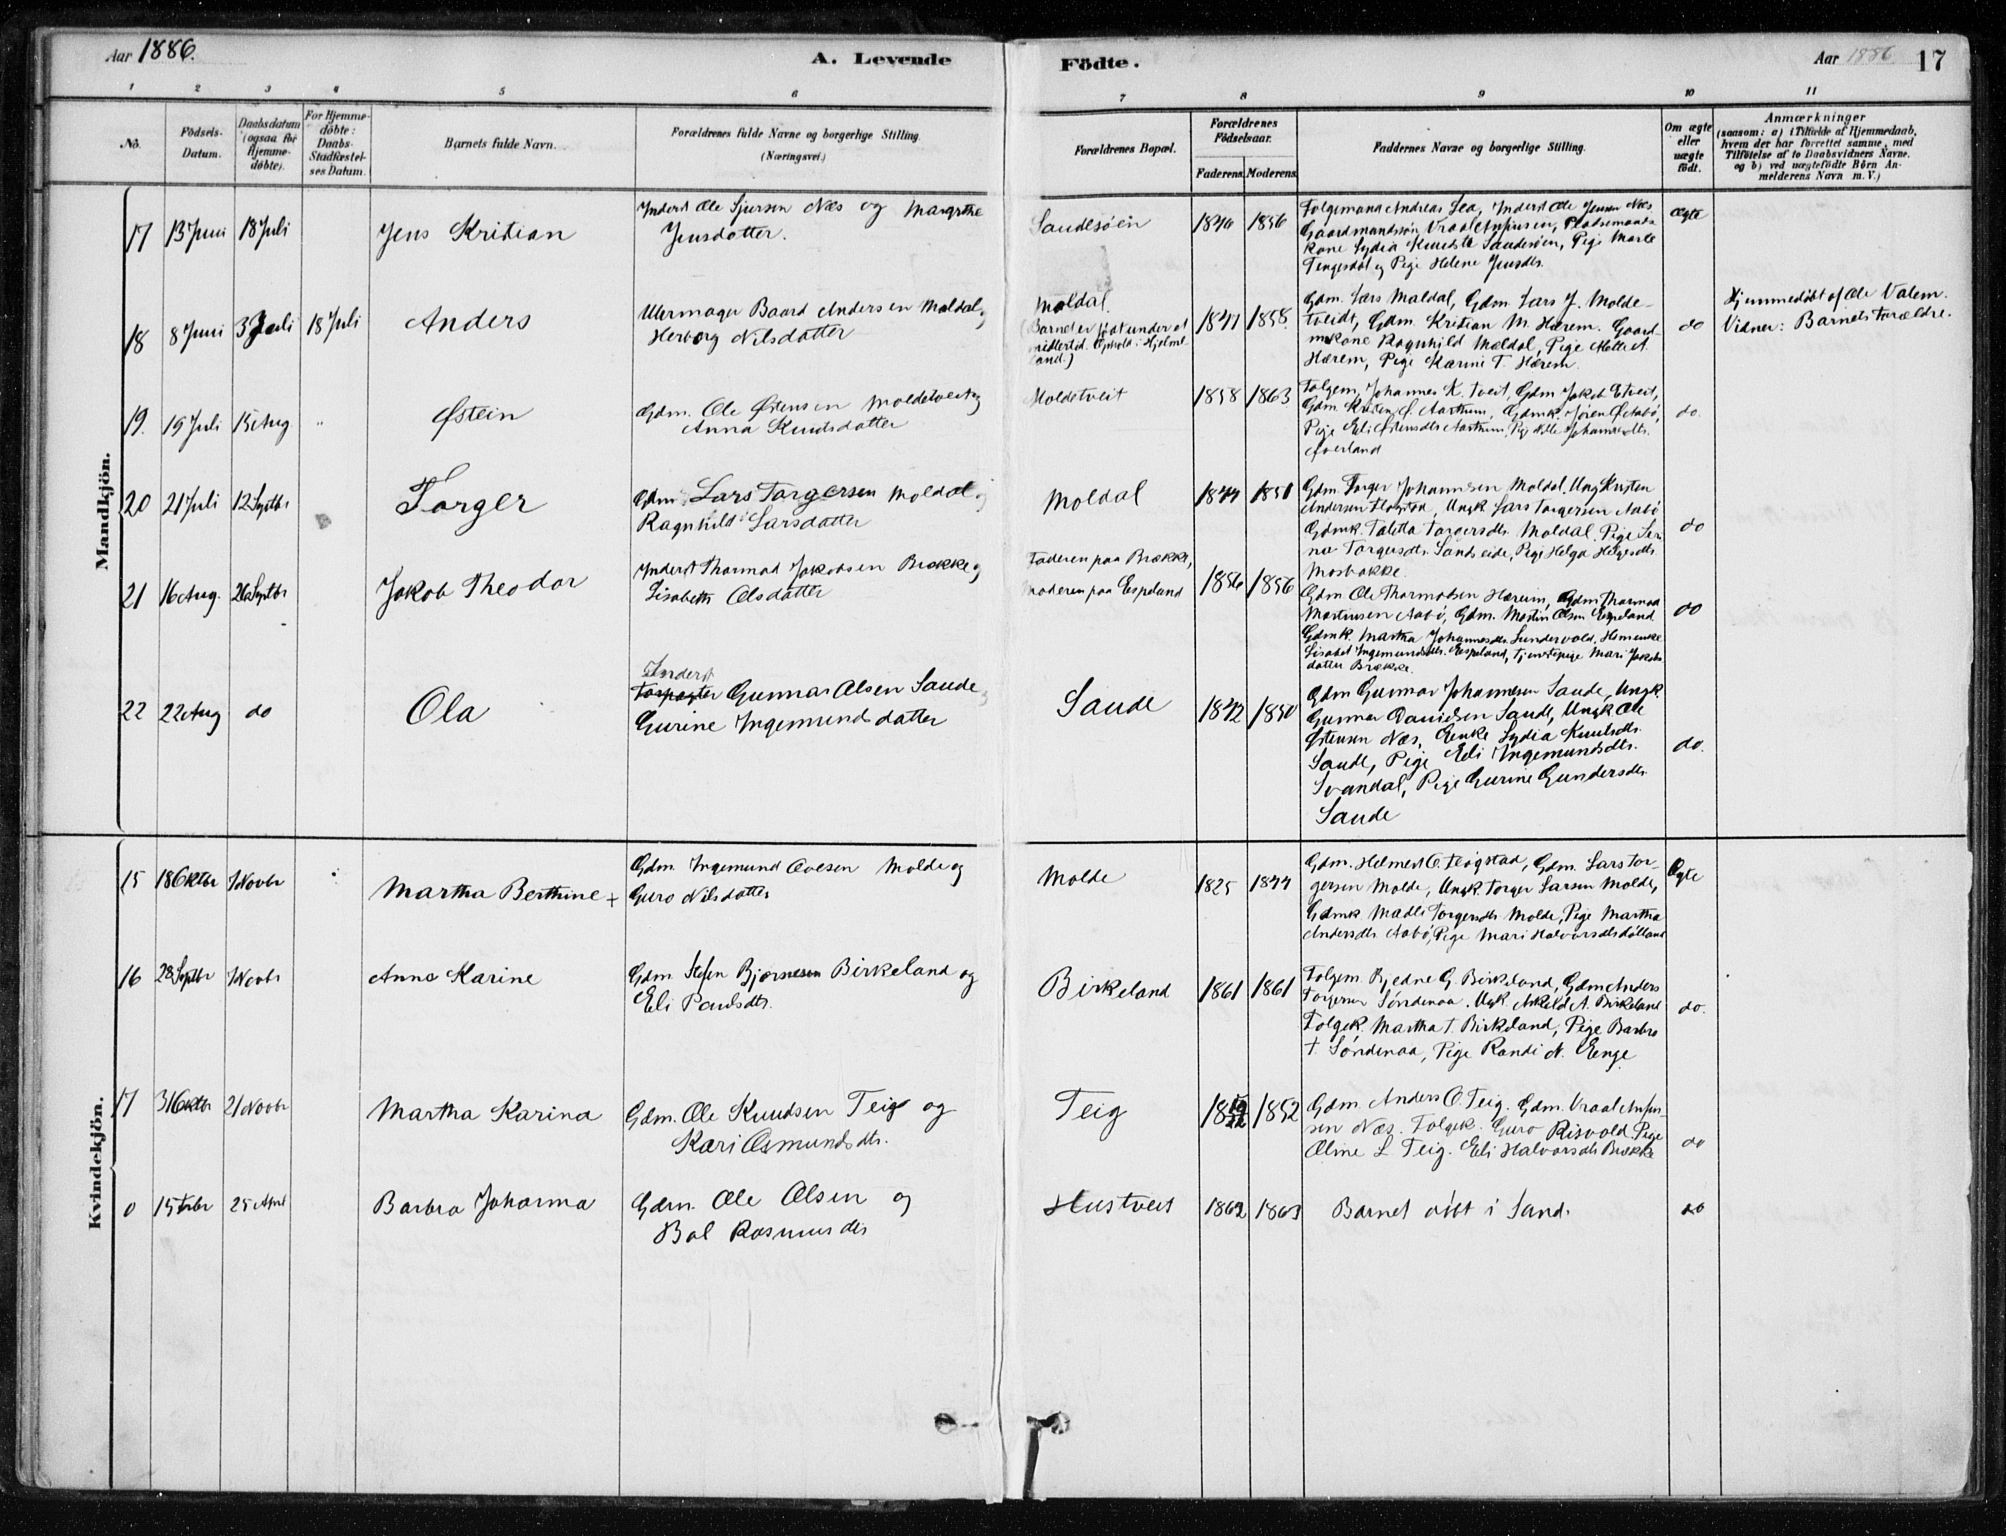 Aar 1886.
A. Levende
Födte.
Aar 1886
17
1 2 3 4 5 6 7 8 9 10 11
No.
Födsels-Datum.
Daabsdatum (ogsaa for Hjemme-döbte).
For Hjemme-döbte: Daabs-Stadfæstel-ses Datum.
Barnets fulde Navn.
Forældrenes fulde Navne og borgerlige Stilling. (Næringsvei.)
Forældrenes Bopæl.
Forældrenes Födselsaar.
Faderens. Moderens.
Faddernes Navne og borgerlige Stilling.
Om ægte eller uægte födt.
Anmærkninger
(saasom: a) i Tilfælde af Hjemmedaab, hvem der har forrettet samme, med Tilföielse af to Daabsvidners Navne, og b) ved uægtefödte Börn Anmelderens Navn m. V.)
Mandkjön.
17 13 Juni 18 Juli
Jens Kristian
Inderst Ole Sjursen Næs og Margrethe
Jensdatter.
Saudesöen
1846 1856
Folgemand Andreas Lea, Inderst Ole Jensen Næs
Gaardmandssön Vraal Anfinsen, Pladsemands
kone Lydia Knudsdt Saudesöen, Pige Marte
Tengesdal og Pige Helene Jensdtr.
Ægte
18 8 Juni 3 Juli 18 Juli
Anders
Uhrmager Baard Andersen Moldal og
Herborg Nilsdatter
Moldal.
(Barnet er födt under et
midlertid. Ophold i Hjelme
land.)
1841 1858.
Gdm. Lars Maldal, Gdm. Lars J. Molde-
tveidt, Gdm. Kristian M. Hærem. Gaard-
mkone Ragnhild Mældal, Pige Mette A.
Hærem, Pige Karine T. Hærem.
do
Hjemmedöbt af Ole Valem.
Vidner: Barnets Forældre.
19. 19 Juli 15 Aug "
Østein
Gdm. Ole Østensen Moldetveit og
Anna Knudsdatter
Moldetveit
1858 1863
Folgem. Johannes K. Tveit, Gdm Jakob Etveit,
Gdm. Kristen Ø. Aarthun, Gdmk. Jören Ø. Aabö,
Pige Eli Østensdtr Aarthun, Pig Johannesdtr.
Øverland
do.
20 21 Juli 12 Septbr
Torger
Gdm. Lars Torgersen Moldal og
Ragnhild Larsdatter
Moldal
1844 1851
Gdm. Torger Johannesen Moldal. Ung Kristen
Andersen Flogstad, Ungk Lars Torgersen Aabö
Gdmk. Taletta Torgersdtr. Moldal, Pige Ser
na Torgersdtr. Sandseide, Pige Helga Helgesdtr
Mosbakke.
do
21 16 Aug. 26 Septbr
Jakob Theodor
Inderst Thormod Jakobsen Brække og
Lisabeth Olsdatter
Faderen paa Brække,
Moderen paa Espeland
1856 1856
Gdm Ole Thormodsen Hærem, Gdm. Thormod
Mortensen Aabö, Gdm. Mostin Olsen Espeland
Gdmk. Martha Johannesdtr. Sundervold,
Lisabet Ingemundsdtr. Espeland, Tjenestepige Mari Jakobs
datter Brække.
do
22 22 Aug do
Ola
Inderst
Forpagter Gunnar Olsen Saude og
Gurine Ingemundsdatter
Saude
1842 1850
Gdm Gunnar Johannesen Saude, Ungk.
Gunnar Danielsen Saude, Ungk Ole
Østensen Næs, Enke Lydia Knudsdtr.
Saude, Pige Eli Ingemundsdtr.
Svandal, Pige Gurine Gundersdtr.
Saude
do.
Kvindekjön.
15 18 Oktbr 1 Novbr
Martha Berthine +
Gdm. Ingemund Ovesen Molde og
Guro Nilsdatter
Molde
1825 1844
Gdm. Helmert O. Flogstad, Gdm. Lars Tor-
gersen Molde, Ungk. Torger Larsen Molde,
Gdmk Madli Torgersdtr Molde, Pige Martha
Andersdtr. Aabö, Pige Mari Halvorsdtr
Ægte
16 28 Septbr 1 Novbr
Anna Karine
Gdm Stefen Bjørnesen Birkeland og
Eli Paulsdtr.
Birkeland
1861 1861
Folgem. Bjedne G. Birkeland, Gdm Anders
Torgersen Söndenaa. Ungk. A. Birkeland
Folgek. Martha T. Birkeland, Pige Barbro
T. Söndenaa, Pige Randi N. Eenge
do.
17 31 Oktbr 21 Novbr
Martha Karina
Gdm. Ole Knudsen Teig og
Kari Osmundsdtr.
Teig
1852 1852
Gdm. Anders O. Teig. Gdm. Vraal Anfin-
sen Næs. Folgek. Guro Risvold. Pige
Oline L Teig. Eli Halvorsdtr Brække
do
0 15 Febr 25 April
Barbra Johanna
Gdm. Ole Olsen og
Bol Rasmusdtr
Hustveit
1862 1863
Barnet döbt i Sand.
do